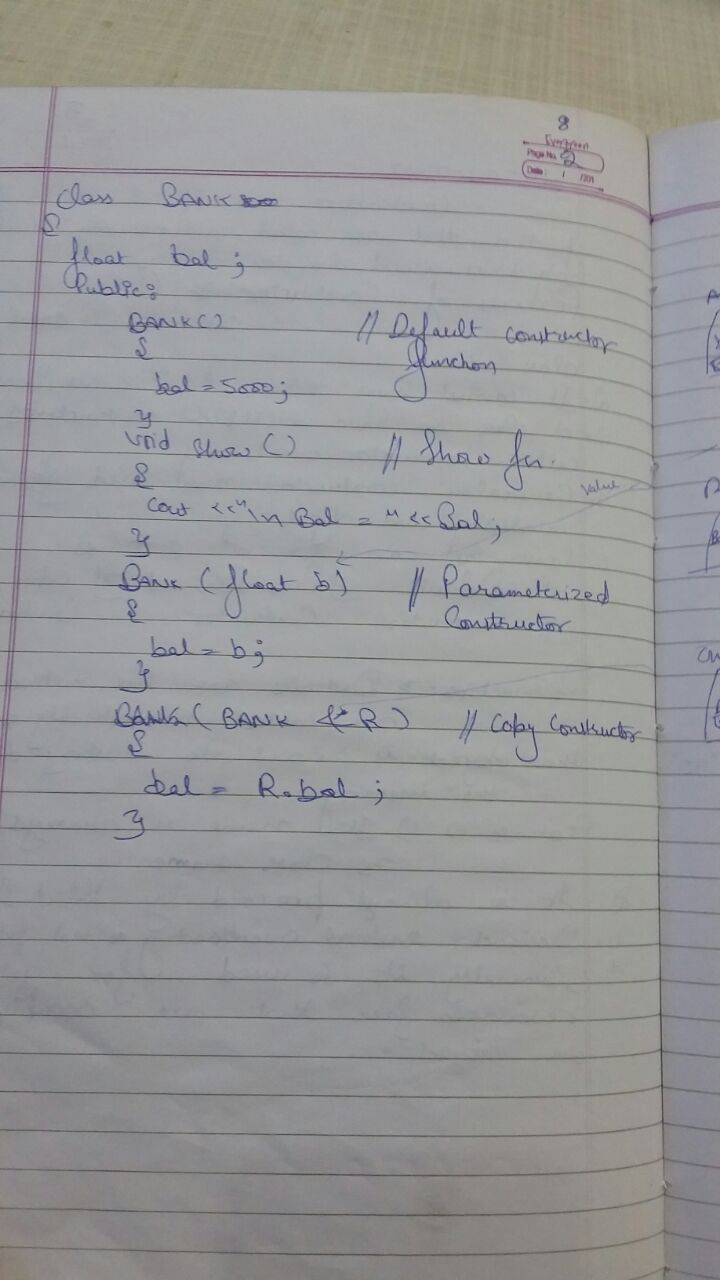 8
Evergreen
Page No. 2
Date: / /201
class BANK
{
float bal ;
Public:
BANK() // Default constructor
{ function
bal = 5000;
}
void show () // Show fn.
{ value
cout <<"\n Bal = "<<Bal;
}
BANK (float b) // Parameterized
{ Constructor
bal = b;
}
BANK ( BANK & R) // Copy Constructor
{
bal = R.bal ;
}